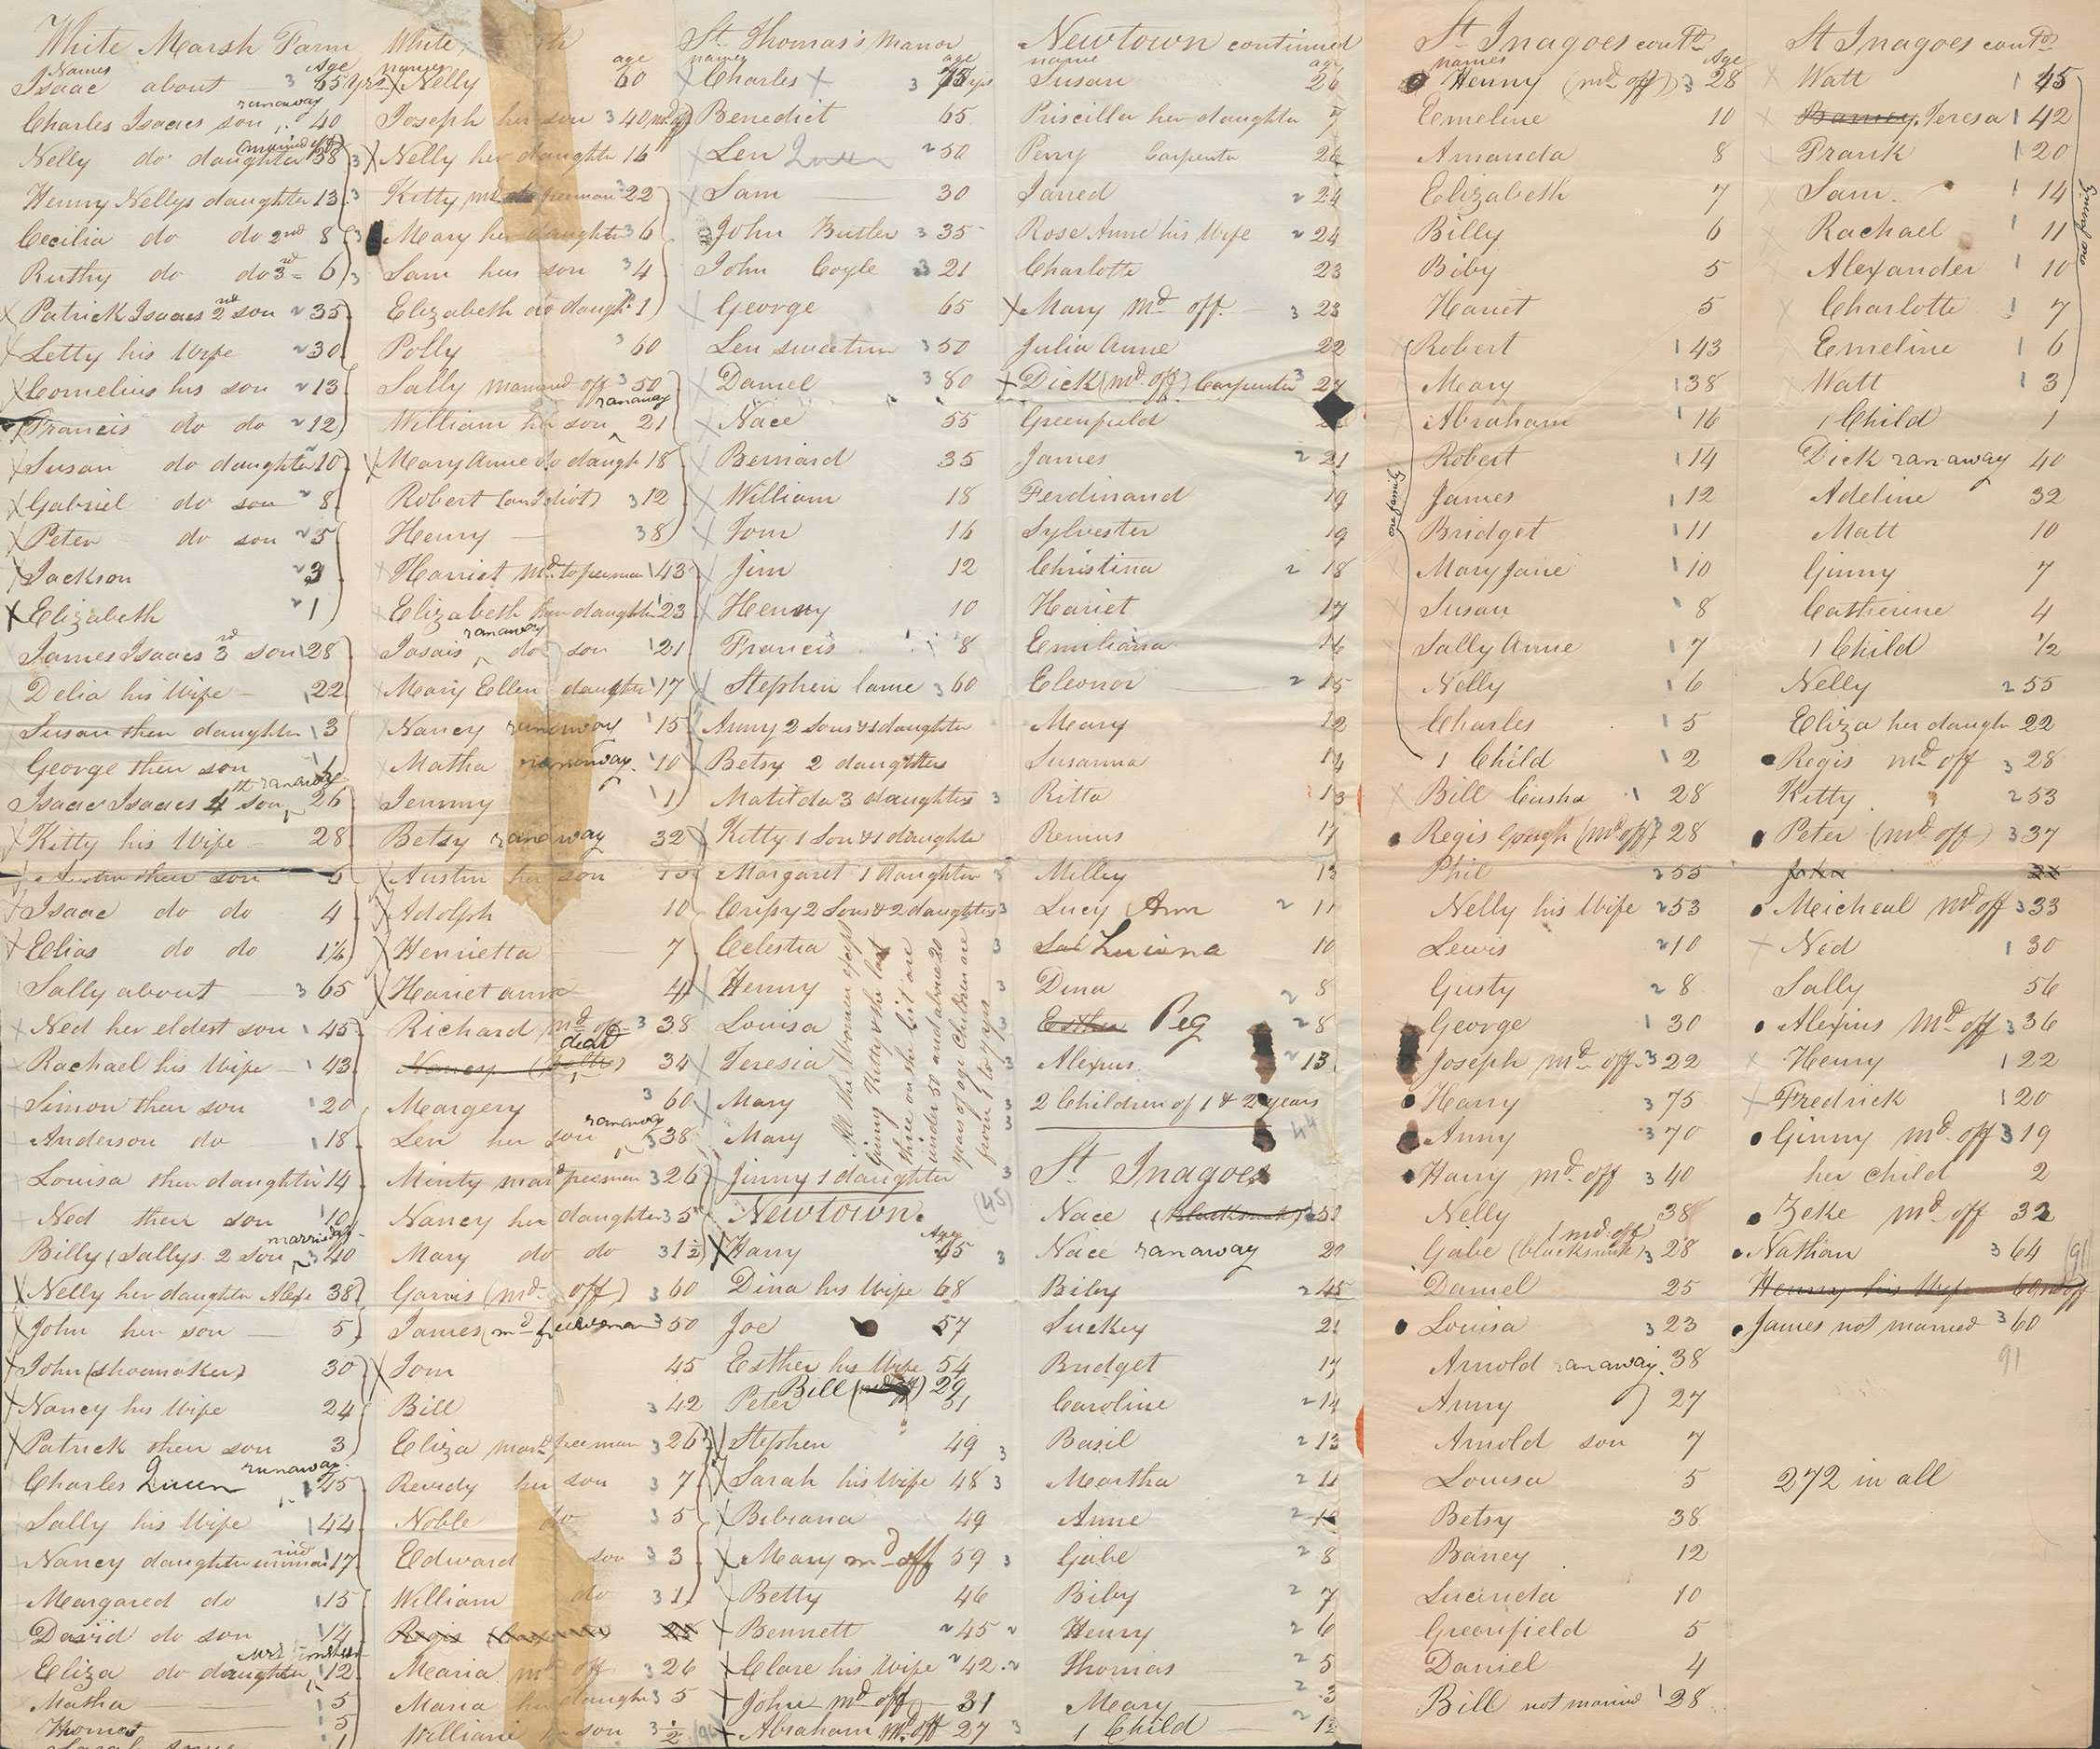 White Marsh Farm
Names Age
Isaac about 3 65 yrs
runaway
Charles Isaacs son 40
(married off)
Nelly do daughter 38
Henny Nellys daughter 13
Cecilia do do 2nd 8
Ruthy do do 3rd 6
Patrick Isaacs 2nd son 35
Letty his Wife 30
Cornelius his son 13
Francis do do 12
Susan do daughter 10
Gabriel do son 8
Peter do son 5
Jackson 3
Elizabeth 1
James Isaacs 3rd son 28
Delia his Wife 22
Susan their daughter 3
George their son 1
ranaway
Isaac Isaacs 4th son 26
Kitty his Wife 28
Austin their son 5
Isaac do do 4
Elias do do 1½
Sally about 3 65
Ned her eldest son 45
Rachael his Wife 43
Simon their son 20
Anderson do 18
Louisa their daughter 14
Ned their son 10
married
Billy (Sallys 2 son 40
Nelly her daughter 38
John her son 5
John (shoemaker) 30
Nancy his Wife 24
Patrick their son 3
runaway
Charles Queen 45
Sally his Wife 44
Nancy daughter 17
Margared do 15
David do son 14
Eliza do daughter 12
Matha 5
Thomas 5
Sarah Anne 1
White
names age
Nelly 60
Joseph her son 3 40
Nelly her daughter 16
Kitty freeman 22
Mary her daughter 3 6
Sam her son 3 4
Elizabeth do daugh 1
Polly 3 60
Sally married off 3 50
ranaway
William her son 21
Mary Anne do daugh 18
Robert (an Idiot) 3 12
Henry 3 8
Harriet md to freeman 43
Elizabeth her daughter 23
ranaway
Isaais do son 21
Mary Ellen daughter 17
Nancy runaway 15
Matha runaway 10
Jemmy 1
Betsy ranaway 32
Austin her son 15
Adolph 10
Henrietta 7
Hariet anne 4
Richard md off 3 38
dead
Nancy 34
Margery 3 60
ranaway
Len her son 38
Minty freeman 3 26
Nancy her daughter 3 5
Mary do do 3 1½
Garvis (md off) 3 60
James (md freewoman 3 50
Tom 45
Bill 3 42
Eliza freeman 3 26
Reverdy her son 3 7
Noble do 3 5
Edward son 3 3
William do 3 1
Regis
Maria md off 3 26
Maria her daugh 3 5
William son 3 ½
St Thomas's Manor
names age
Charles 3 75 yrs
Benedict 65
Len Queen 2 50
Sam 30
John Butler 3 35
John Coyle 3 21
George 65
Len sweetum 3 50
Daniel 3 80
Nace 55
Bernard 35
William 18
Tom 16
Jim 12
Henny 10
Francis 8
Stephen lame 3 60
Anny 2 sons & 1 daughter
Betsy 2 daughters
Matilda 3 daughters
Kitty 1 Son & 1 daughter
Margaret 1 daughter
Crisy 2 Sons & 2 daughters
Celestia
Henny
Louisa
Teresia
Mary
Mary
Jinny 1 daughter
All the Women except
Ginny Kitty & the last
three on the list are
under 50 and above 20
years of age Children are
from 1 to 9 yrs
Newtown.
Age
Harry 65
Dina his Wife 68
Joe 57
Esther his Wife 54
Bill 29
Peter 31
Stephen 49
Sarah his Wife 48
Bibiana 49
Mary md off 59
Betty 46
Bennett 45
Clare his Wife 42
John md off 31
Abraham md off 27
Newtown continued
name age
Susan 26
Priscilla her daughter 7
Perry Carpenter 26
Jarred 2 24
Rose Anne his Wife 2 24
Charlotte 23
Mary md off 3 23
Julia Anne 22
Dick (md off) Carpenter 3
Greenfield
James 2 21
Ferdinand 19
Sylvester 19
Christina 2 18
Hariet 17
Emiliana 16
Eleonor 2 15
Mary 12
Susanna 14
Ritta 13
Remus 17
Milley 13
Lucy Ann 2 11
Luciana 10
Dina 8
Esther Peg 2 8
Alexius 2 13
2 Children of 1 & 2 years
St Inagoes
Nace (blacksmith)
Nace ranaway 20
Biby 2 45
Suckey 21
Bridget 17
Caroline 2 14
Basil 2 13
Martha 2 11
Anne 2 10
Gabe 2 8
Biby 2 7
Henny 2 6
Thomas 2 5
Mary 2 3
1 Child 2 1½
St Inagoes contd
names Age
Henny (md off) 3 28
Emeline 10
Amanda 8
Elizabeth 7
Billy 6
Biby 5
Hariet 5
one family
Robert 1 43
Mary 1 38
Abraham 1 16
Robert 1 14
James 1 12
Bridget 1 11
Mary Jane 1 10
Susan 1 8
Sally Anne 1 7
Nelly 1 6
Charles 1 5
1 Child 1 2
Bill Cusha 1 28
Regis Gough (md off) 28
Phil 2 55
Nelly his Wife 2 53
Lewis 2 10
Gusty 2 8
George 1 30
Joseph md off 3 22
Harry 3 75
Anny 3 70
Harry md off 3 40
Nelly 38
(md off)
Gabe (blacksmith) 3 28
Daniel 25
Louisa 3 23
Arnold ranaway 38
Anny 27
Arnold son 7
Louisa 5
Betsy 38
Baney 12
Lucinda 10
Greenfield 5
Daniel 4
Bill not married 1 28
St Inagoes contd
one family
Watt 1 45
Barney Teresa 1 42
Frank 1 20
Sam 1 14
Rachael 1 11
Alexander 1 10
Charlotte 1 7
Emeline 1 6
Watt 1 3
1 Child 1
Dick ranaway 40
Adeline 32
Matt 10
Ginny 7
Catherine 4
1 Child ½
Nelly 2 55
Eliza her daugh 22
Regis md off 3 28
Kitty 2 53
Peter (md off) 3 37
John
Meicheal md off 3 33
Ned 1 30
Sally 56
Alexius md off 3 36
Henny 1 22
Fredrick 1 20
Ginny md off 3 19
her child 2
Zeke md off 32
Nathan 3 64
91
Henny his Wife 60
James not married 3 60
91
272 in all